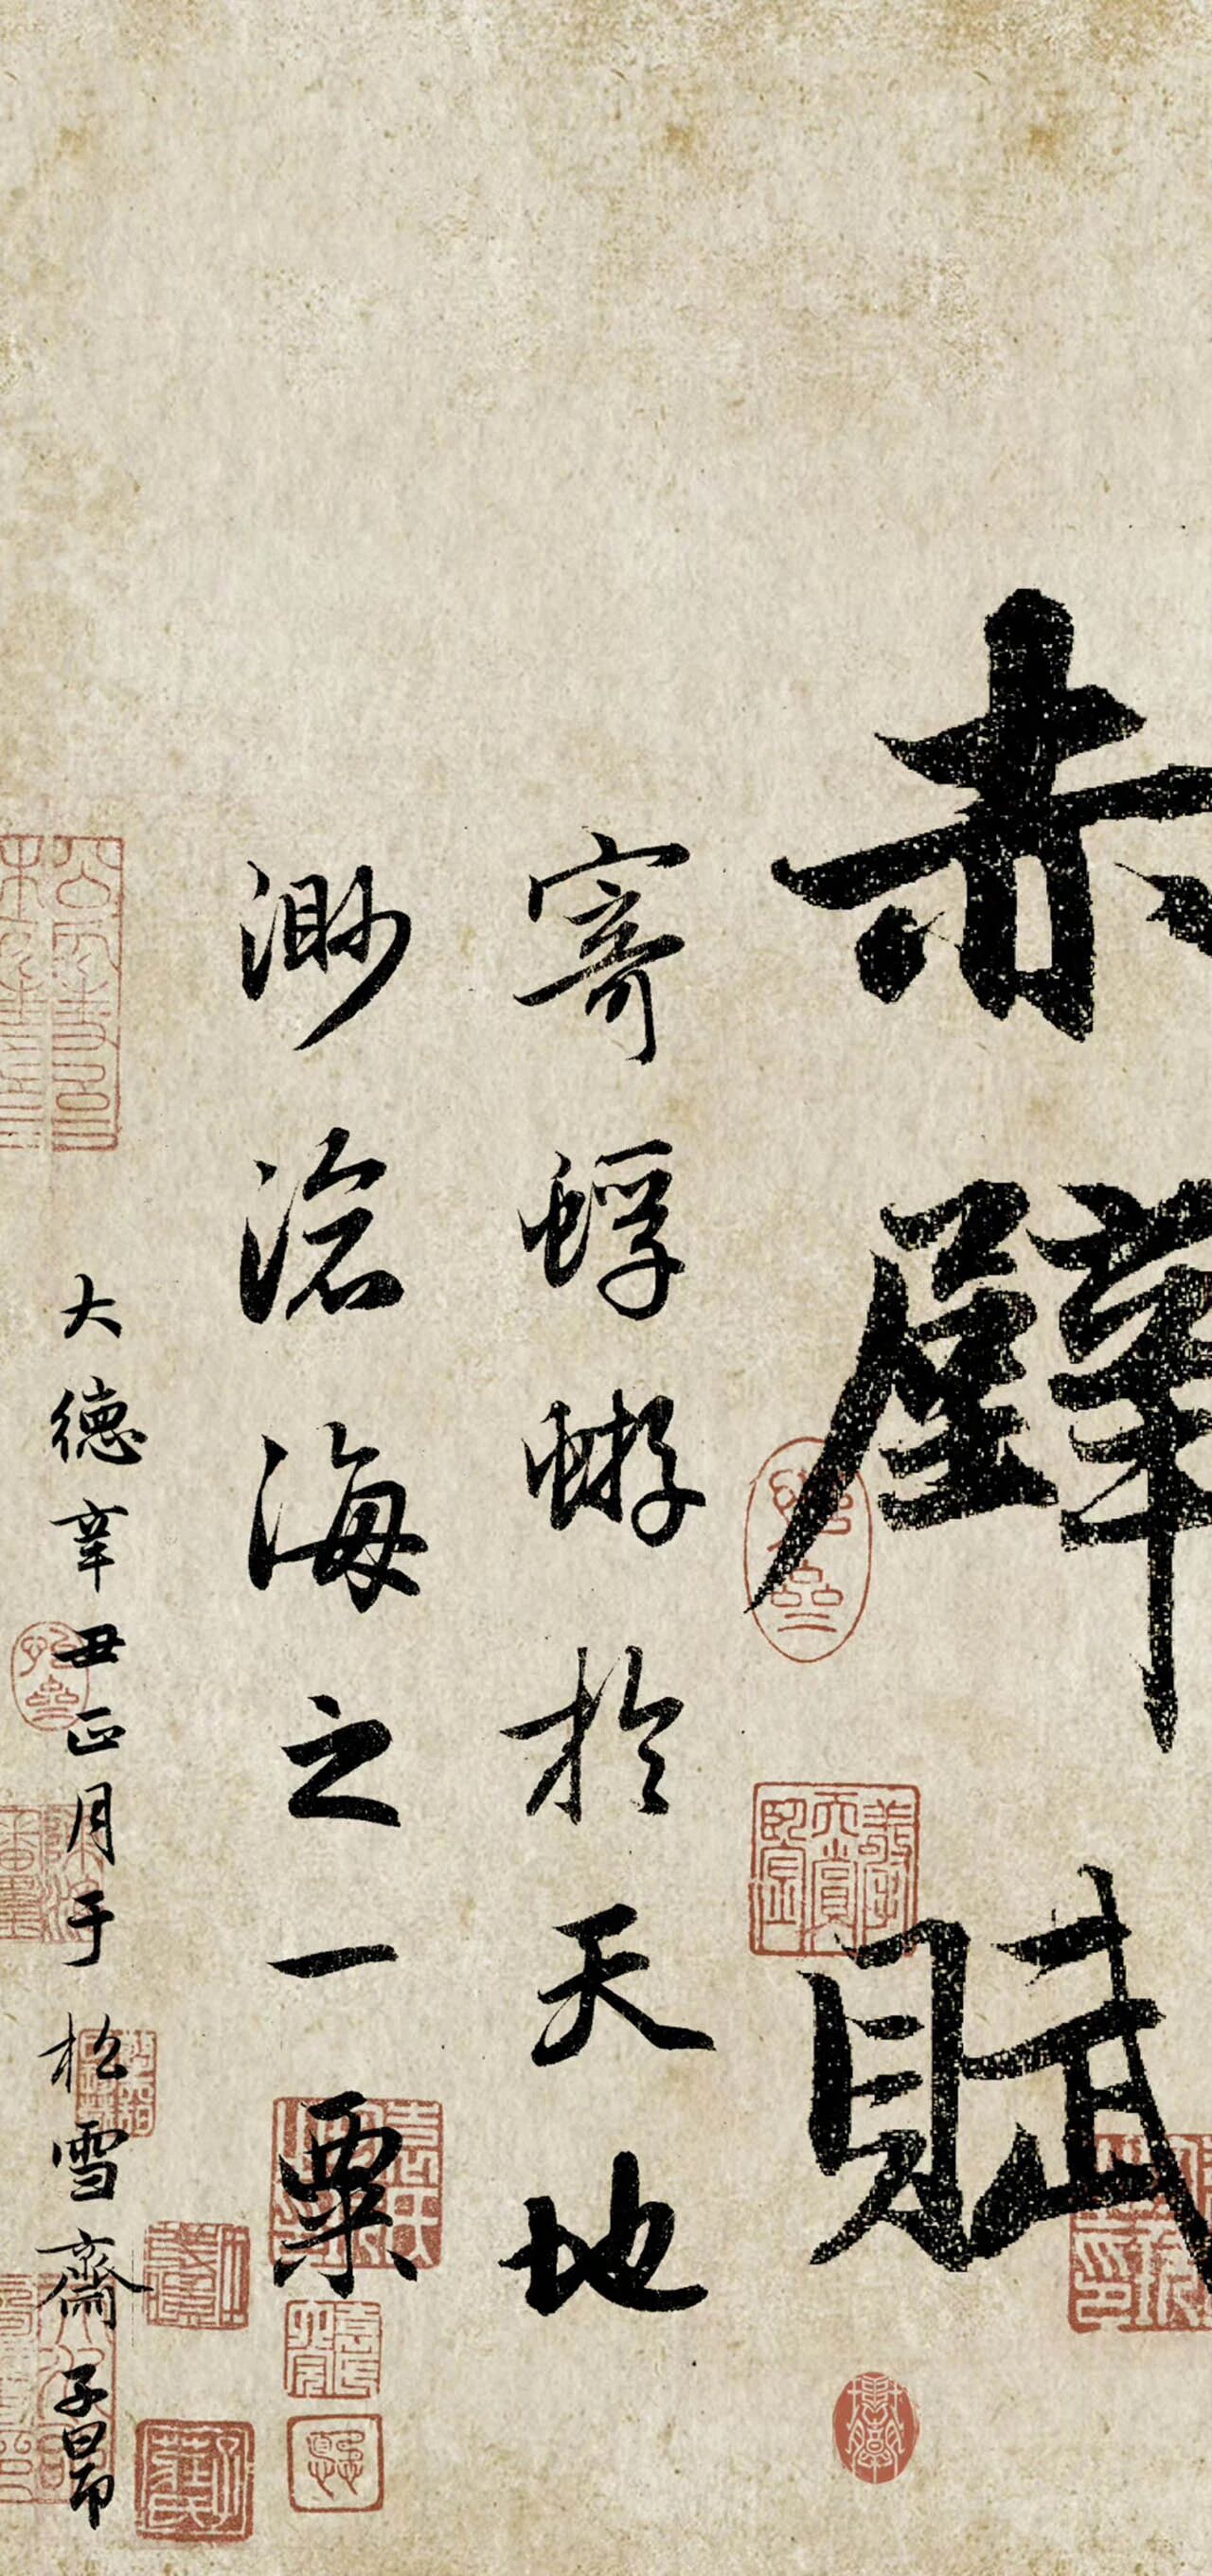 赤壁賦
寄蜉蝣於天地
渺滄海之一粟
大德辛丑正月于松雪齋子昂